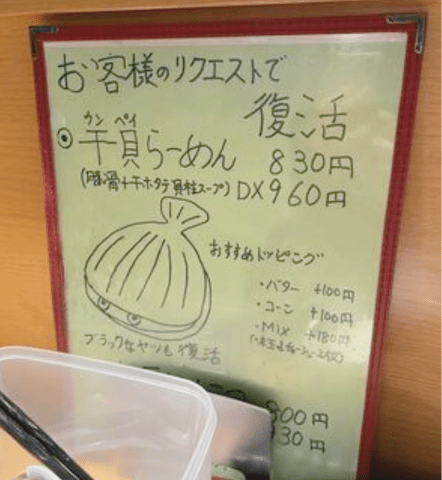 お客様のリクエストで
復活
カン ペイ
干貝らーめん 830円
(豚骨+干ホタテ貝柱スープ) DX960円
おすすめトッピング
・バター +100円
・コーン +100円
・Mix +180円
ブラックなヤツも復活
800円
930円